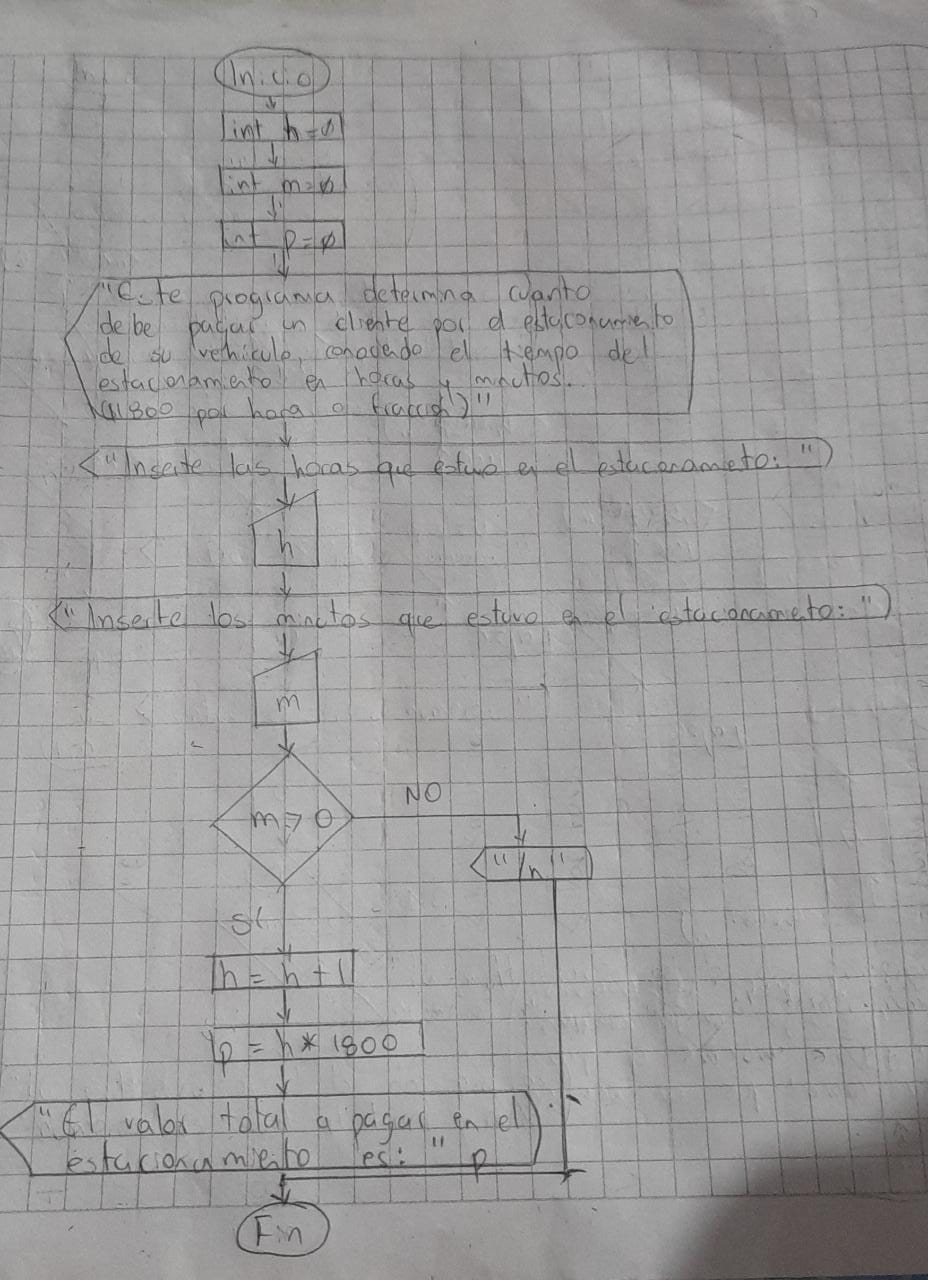 Inicio
int h=0
int m=0
int p=0
"Este programa determina cuanto
debe pagar un cliente por el estaconamiento
de su vehiculo, conociendo el tiempo del
estacionamiento en horas y minutos.
(1800 por hora o fracción)"
"Inserte las horas que estuvo en el estaconameto: "
h
"Inserte los minutos que estuvo en el estaconameto: "
m
m > 0
NO
"/n"
Si
h = h + 1
p = h * 1800
"El valor total a pagar en el
estacionamiento es: " p
Fin